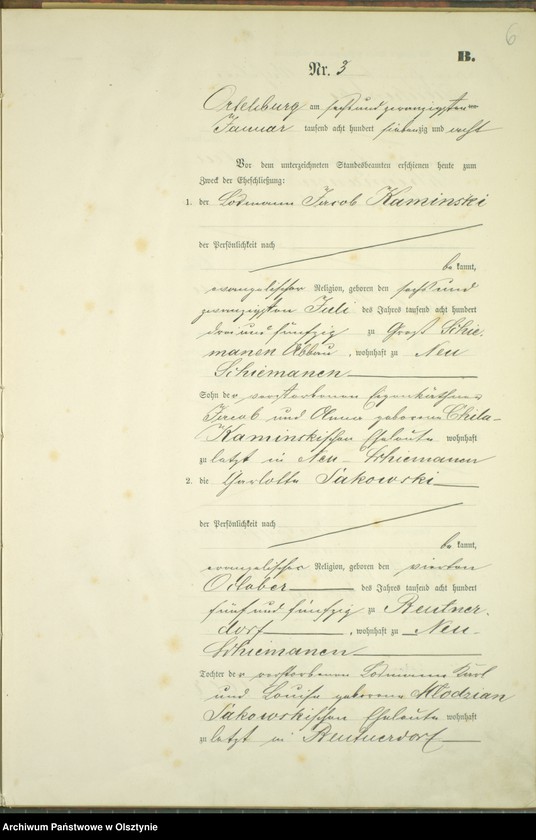 6
B.
Nr. 3
Ortelsburg am sechs und zwanzigsten
Januar tausend acht hundert siebenzig und acht
Vor dem unterzeichneten Standesbeamten erschienen heute zum
Zweck der Eheschließung:
1. der Losmann Jacob Kaminski
der Persönlichkeit nach
be kannt,
evangelischer Religion, geboren den sechs und
zwanzigsten Juli des Jahres tausend acht hundert
drei und fünfzig zu Groß Schie-
manen Abbau, wohnhaft zu Neu
Schiemanen
Sohn der verstorbenen Eigenkäthner
Jacob und Anna geborene
Kaminskischen Eheleute wohnhaft
zu letzt in Neu-Schiemanen
2. die Charlotte Sakowski
der Persönlichkeit nach
be kannt,
evangelischer Religion, geboren den vierten
October des Jahres tausend acht hundert
fünf und fünfzig zu Rentner-
dorf, wohnhaft zu Neu-
Schiemanen
Tochter der verstorbenen Losmann Karl
und Louise geborene Mlodzian
Sakowskischen Eheleute wohnhaft
zu letzt in Rentnerdorf
Archiwum Państwowe w Olsztynie